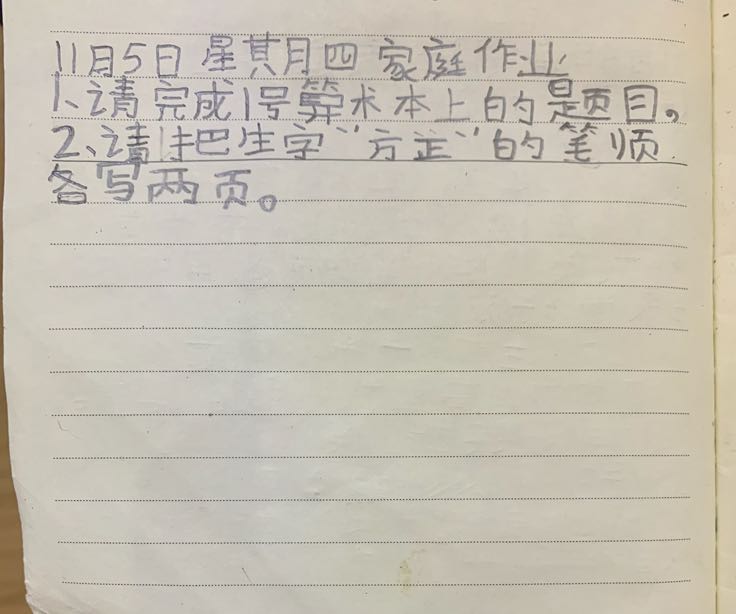 11月5日 星其月四 家庭作业
1、请完成1号算术本上的题目。
2、请把生字“方正”的笔顺
各写两页。